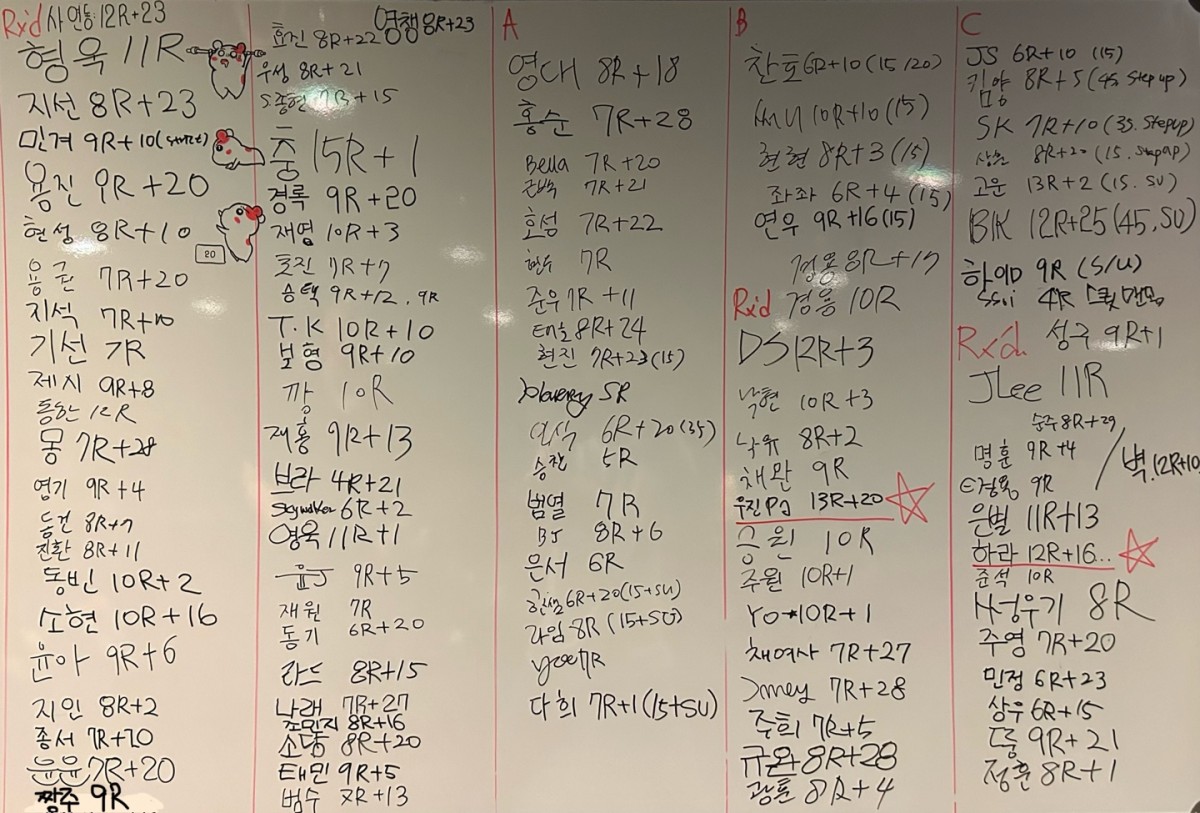 Rx'd 사연동 12R+23
형욱 11R
지선 8R+23
민겨 9R+10
용진 9R+20
현성 8R+10
20
용근 7R+20
지석 7R+10
기선 7R
제시 9R+8
동한 12R
몽 7R+28
엽기 9R+4
동건 8R+7
진환 8R+11
동빈 10R+2
소현 10R+16
윤아 9R+6
지인 8R+2
종서 7R+20
윤윤 7R+20
짱주 9R
효진 8R+22 영챙 8R+23
우성 8R+21
S종현 7R+15
충 15R+1
경록 9R+20
재영 10R+3
호진 7R+7
승택 9R+12, 9R
T.K 10R+10
보형 9R+10
깡 10R
재홍 9R+13
브라 4R+21
Skywalker 6R+2
영욱 11R+1
윤J 9R+5
재원 7R
동기 6R+20
라드 8R+15
나래 7R+27
조민지 8R+16
소동 8R+20
태민 9R+5
범수 7R+13
A
영대 8R+18
홍순 7R+28
Bella 7R+20
7R+21
효섬 7R+22
현수 7R
준우 7R+11
태훈 8R+24
현진 7R+23(15)
5R
인식 6R+20(35)
승찬 5R
범열 7R
BJ 8R+6
문서 6R
한샘 6R+20(15+SU)
라임 8R(15+SU)
7R
다희 7R+1(15+SU)
B
찬호 6R+10(15/20)
써니 10R+10(15)
현현 8R+3(15)
좌좌 6R+4(15)
연우 9R+16(15)
정용 8R+17
Rx'd 경용 10R
DS 12R+3
낙현 10R+3
낙유 8R+2
채완 9R
우진Pa 13R+20
승원 10R
주원 10R+1
Yo* 10R+1
채여사 7R+27
Jmey 7R+28
주희 7R+5
규완 8R+28
광훈 8R+4
C
JS 6R+10 (15)
김양 8R+5(45. Step up)
SK 7R+10(35. Stepup)
8R+20(15. stepup)
고운 13R+2(15. SU)
BK 12R+25(45, SU)
하이D 9R(S/U)
Ssoi 4R
Rx'd. 성구 9R+1
JLee 11R
승주 8R+29
명훈 9R+4 / 벽.12R+10
E경용 9R
은별 11R+13
하라 12R+16...
준석 10R
서정우기 8R
주영 7R+20
민정 6R+23
상우 6R+15
9R+21
정훈 8R+1